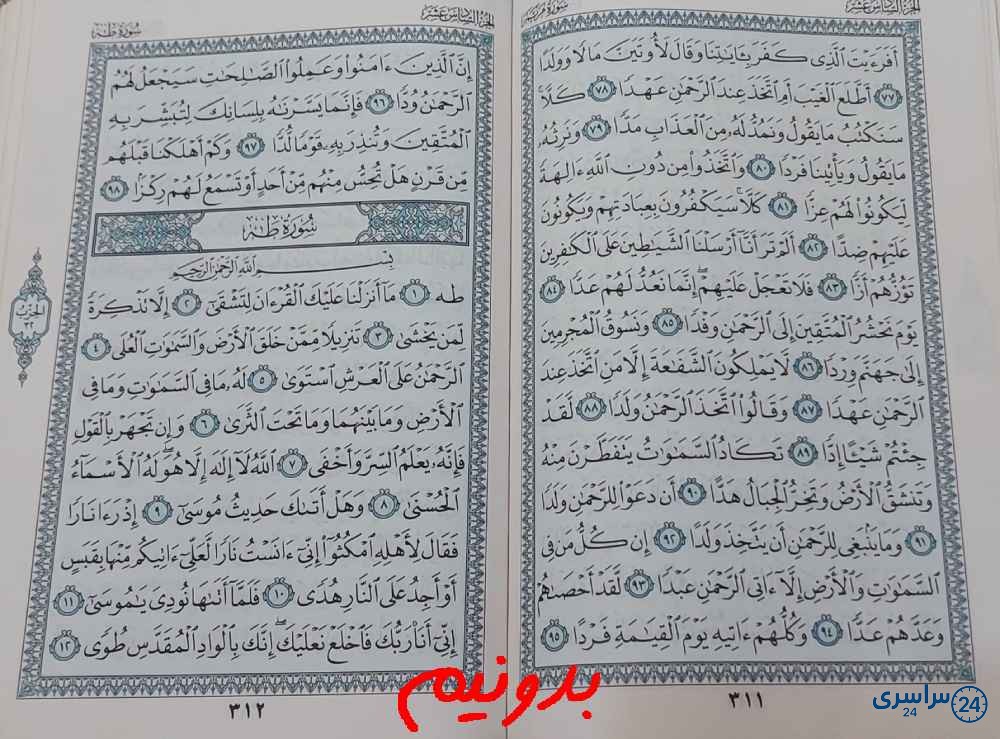 الجزء السادس عشر
سورة مريم
أَفَرَءَيْتَ ٱلَّذِى كَفَرَ بِـَٔايَـٰتِنَا وَقَالَ لَأُوتَيَنَّ مَالًا وَوَلَدًا
٧٧ أَطَّلَعَ ٱلْغَيْبَ أَمِ ٱتَّخَذَ عِندَ ٱلرَّحْمَـٰنِ عَهْدًا ٧٨ كَلَّا
سَنَكْتُبُ مَا يَقُولُ وَنَمُدُّ لَهُۥ مِنَ ٱلْعَذَابِ مَدًّا ٧٩ وَنَرِثُهُۥ
مَا يَقُولُ وَيَأْتِينَا فَرْدًا ٨٠ وَٱتَّخَذُوا۟ مِن دُونِ ٱللَّهِ ءَالِهَةً
لِّيَكُونُوا۟ لَهُمْ عِزًّا ٨١ كَلَّا سَيَكْفُرُونَ بِعِبَادَتِهِمْ وَيَكُونُونَ
عَلَيْهِمْ ضِدًّا ٨٢ أَلَمْ تَرَ أَنَّآ أَرْسَلْنَا ٱلشَّيَـٰطِينَ عَلَى ٱلْكَـٰفِرِينَ
تَؤُزُّهُمْ أَزًّا ٨٣ فَلَا تَعْجَلْ عَلَيْهِمْ إِنَّمَا نَعُدُّ لَهُمْ عَدًّا ٨٤
يَوْمَ نَحْشُرُ ٱلْمُتَّقِينَ إِلَى ٱلرَّحْمَـٰنِ وَفْدًا ٨٥ وَنَسُوقُ ٱلْمُجْرِمِينَ
إِلَىٰ جَهَنَّمَ وِرْدًا ٨٦ لَّا يَمْلِكُونَ ٱلشَّفَـٰعَةَ إِلَّا مَنِ ٱتَّخَذَ عِندَ
ٱلرَّحْمَـٰنِ عَهْدًا ٨٧ وَقَالُوا۟ ٱتَّخَذَ ٱلرَّحْمَـٰنُ وَلَدًا ٨٨ لَّقَدْ
جِئْتُمْ شَيْـًٔا إِدًّا ٨٩ تَكَادُ ٱلسَّمَـٰوَٰتُ يَتَفَطَّرْنَ مِنْهُ
وَتَنشَقُّ ٱلْأَرْضُ وَتَخِرُّ ٱلْجِبَالُ هَدًّا ٩٠ أَن دَعَوْا۟ لِلرَّحْمَـٰنِ وَلَدًا
٩١ وَمَا يَنۢبَغِى لِلرَّحْمَـٰنِ أَن يَتَّخِذَ وَلَدًا ٩٢ إِن كُلُّ مَن فِى
ٱلسَّمَـٰوَٰتِ وَٱلْأَرْضِ إِلَّآ ءَاتِى ٱلرَّحْمَـٰنِ عَبْدًا ٩٣ لَّقَدْ أَحْصَىٰهُمْ
وَعَدَّهُمْ عَدًّا ٩٤ وَكُلُّهُمْ ءَاتِيهِ يَوْمَ ٱلْقِيَـٰمَةِ فَرْدًا ٩٥
٣١١
الجزء السادس عشر
سورة طه
إِنَّ ٱلَّذِينَ ءَامَنُوا۟ وَعَمِلُوا۟ ٱلصَّـٰلِحَـٰتِ سَيَجْعَلُ لَهُمُ
ٱلرَّحْمَـٰنُ وُدًّا ٩٦ فَإِنَّمَا يَسَّرْنَـٰهُ بِلِسَانِكَ لِتُبَشِّرَ بِهِ
ٱلْمُتَّقِينَ وَتُنذِرَ بِهِۦ قَوْمًا لُّدًّا ٩٧ وَكَمْ أَهْلَكْنَا قَبْلَهُم
مِّن قَرْنٍ هَلْ تُحِسُّ مِنْهُم مِّنْ أَحَدٍ أَوْ تَسْمَعُ لَهُمْ رِكْزًۢا ٩٨
سورة طه
بِسْمِ ٱللَّهِ ٱلرَّحْمَـٰنِ ٱلرَّحِيمِ
طه ١ مَآ أَنزَلْنَا عَلَيْكَ ٱلْقُرْءَانَ لِتَشْقَىٰٓ ٢ إِلَّا تَذْكِرَةً
لِّمَن يَخْشَىٰ ٣ تَنزِيلًا مِّمَّنْ خَلَقَ ٱلْأَرْضَ وَٱلسَّمَـٰوَٰتِ ٱلْعُلَى ٤
ٱلرَّحْمَـٰنُ عَلَى ٱلْعَرْشِ ٱسْتَوَىٰ ٥ لَهُۥ مَا فِى ٱلسَّمَـٰوَٰتِ وَمَا فِى
ٱلْأَرْضِ وَمَا بَيْنَهُمَا وَمَا تَحْتَ ٱلثَّرَىٰ ٦ وَإِن تَجْهَرْ بِٱلْقَوْلِ
فَإِنَّهُۥ يَعْلَمُ ٱلسِّرَّ وَأَخْفَى ٧ ٱللَّهُ لَآ إِلَـٰهَ إِلَّا هُوَ لَهُ ٱلْأَسْمَآءُ
ٱلْحُسْنَىٰ ٨ وَهَلْ أَتَىٰكَ حَدِيثُ مُوسَىٰٓ ٩ إِذْ رَءَا نَارًا
فَقَالَ لِأَهْلِهِ ٱمْكُثُوٓا۟ إِنِّىٓ ءَانَسْتُ نَارًا لَّعَلِّىٓ ءَاتِيكُم مِّنْهَا بِقَبَسٍ
أَوْ أَجِدُ عَلَى ٱلنَّارِ هُدًى ١٠ فَلَمَّآ أَتَىٰهَا نُودِىَ يَـٰمُوسَىٰٓ ١١
إِنِّىٓ أَنَا۠ رَبُّكَ فَٱخْلَعْ نَعْلَيْكَ إِنَّكَ بِٱلْوَادِ ٱلْمُقَدَّسِ طُوًى ١٢
٣١٢
الحزب
٣٢
بدونیم
سراسری
24
24